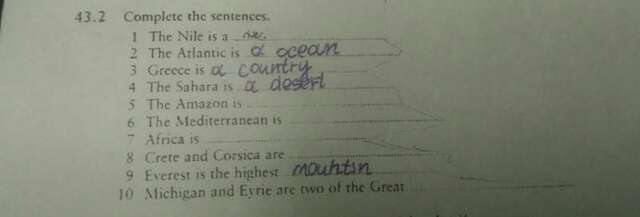 43.2 Complete the sentences.
1 The Nile is a river.
2 The Atlantic is a ocean
3 Greece is a country
4 The Sahara is a desert
5 The Amazon is
6 The Mediterranean is
7 Africa is
8 Crete and Corsica are
9 Everest is the highest mouhtin
10 Michigan and Eyrie are two of the Great